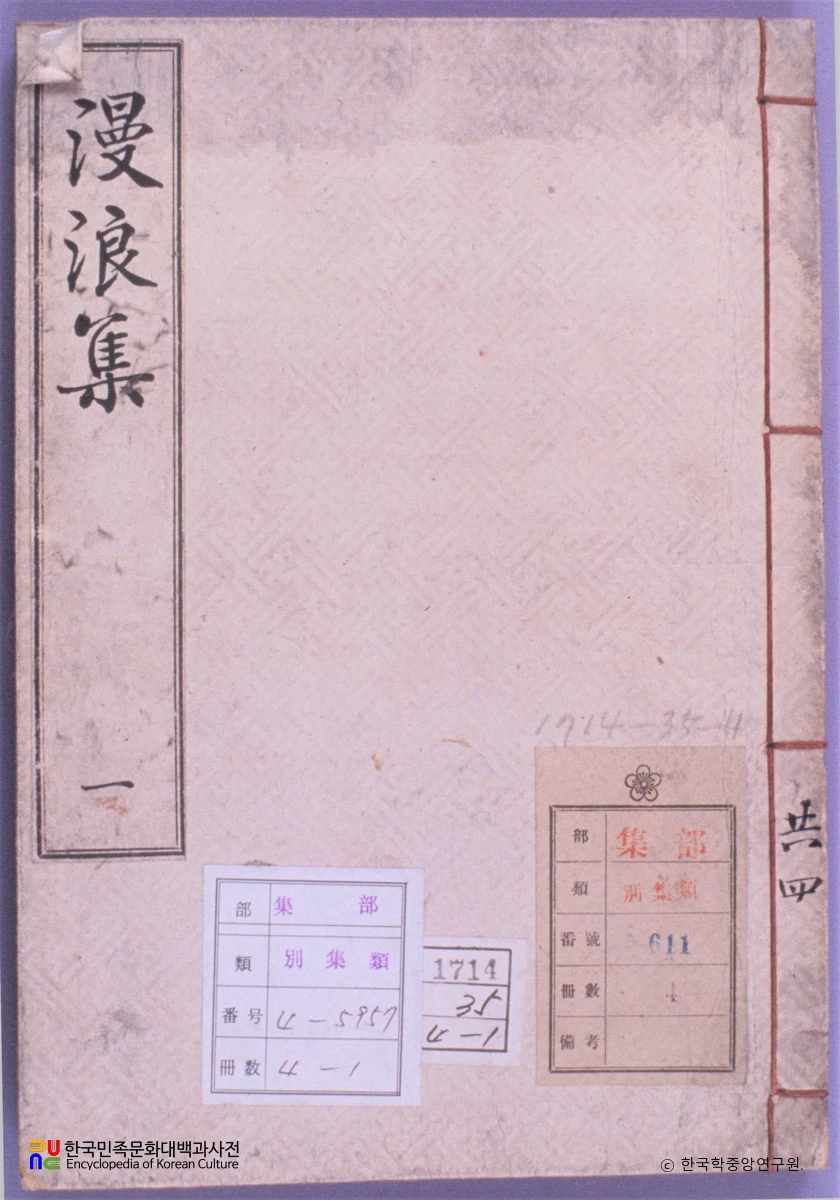 漫浪集
一
共四
1714-35-4
部 集部
類 別集類
番號 611
冊數 4
備考
部 集部
類 別集類
番号 4-5957
冊数 4-1
1714
35
4-1
한국민족문화대백과사전
Encyclopedia of Korean Culture
© 한국학중앙연구원.